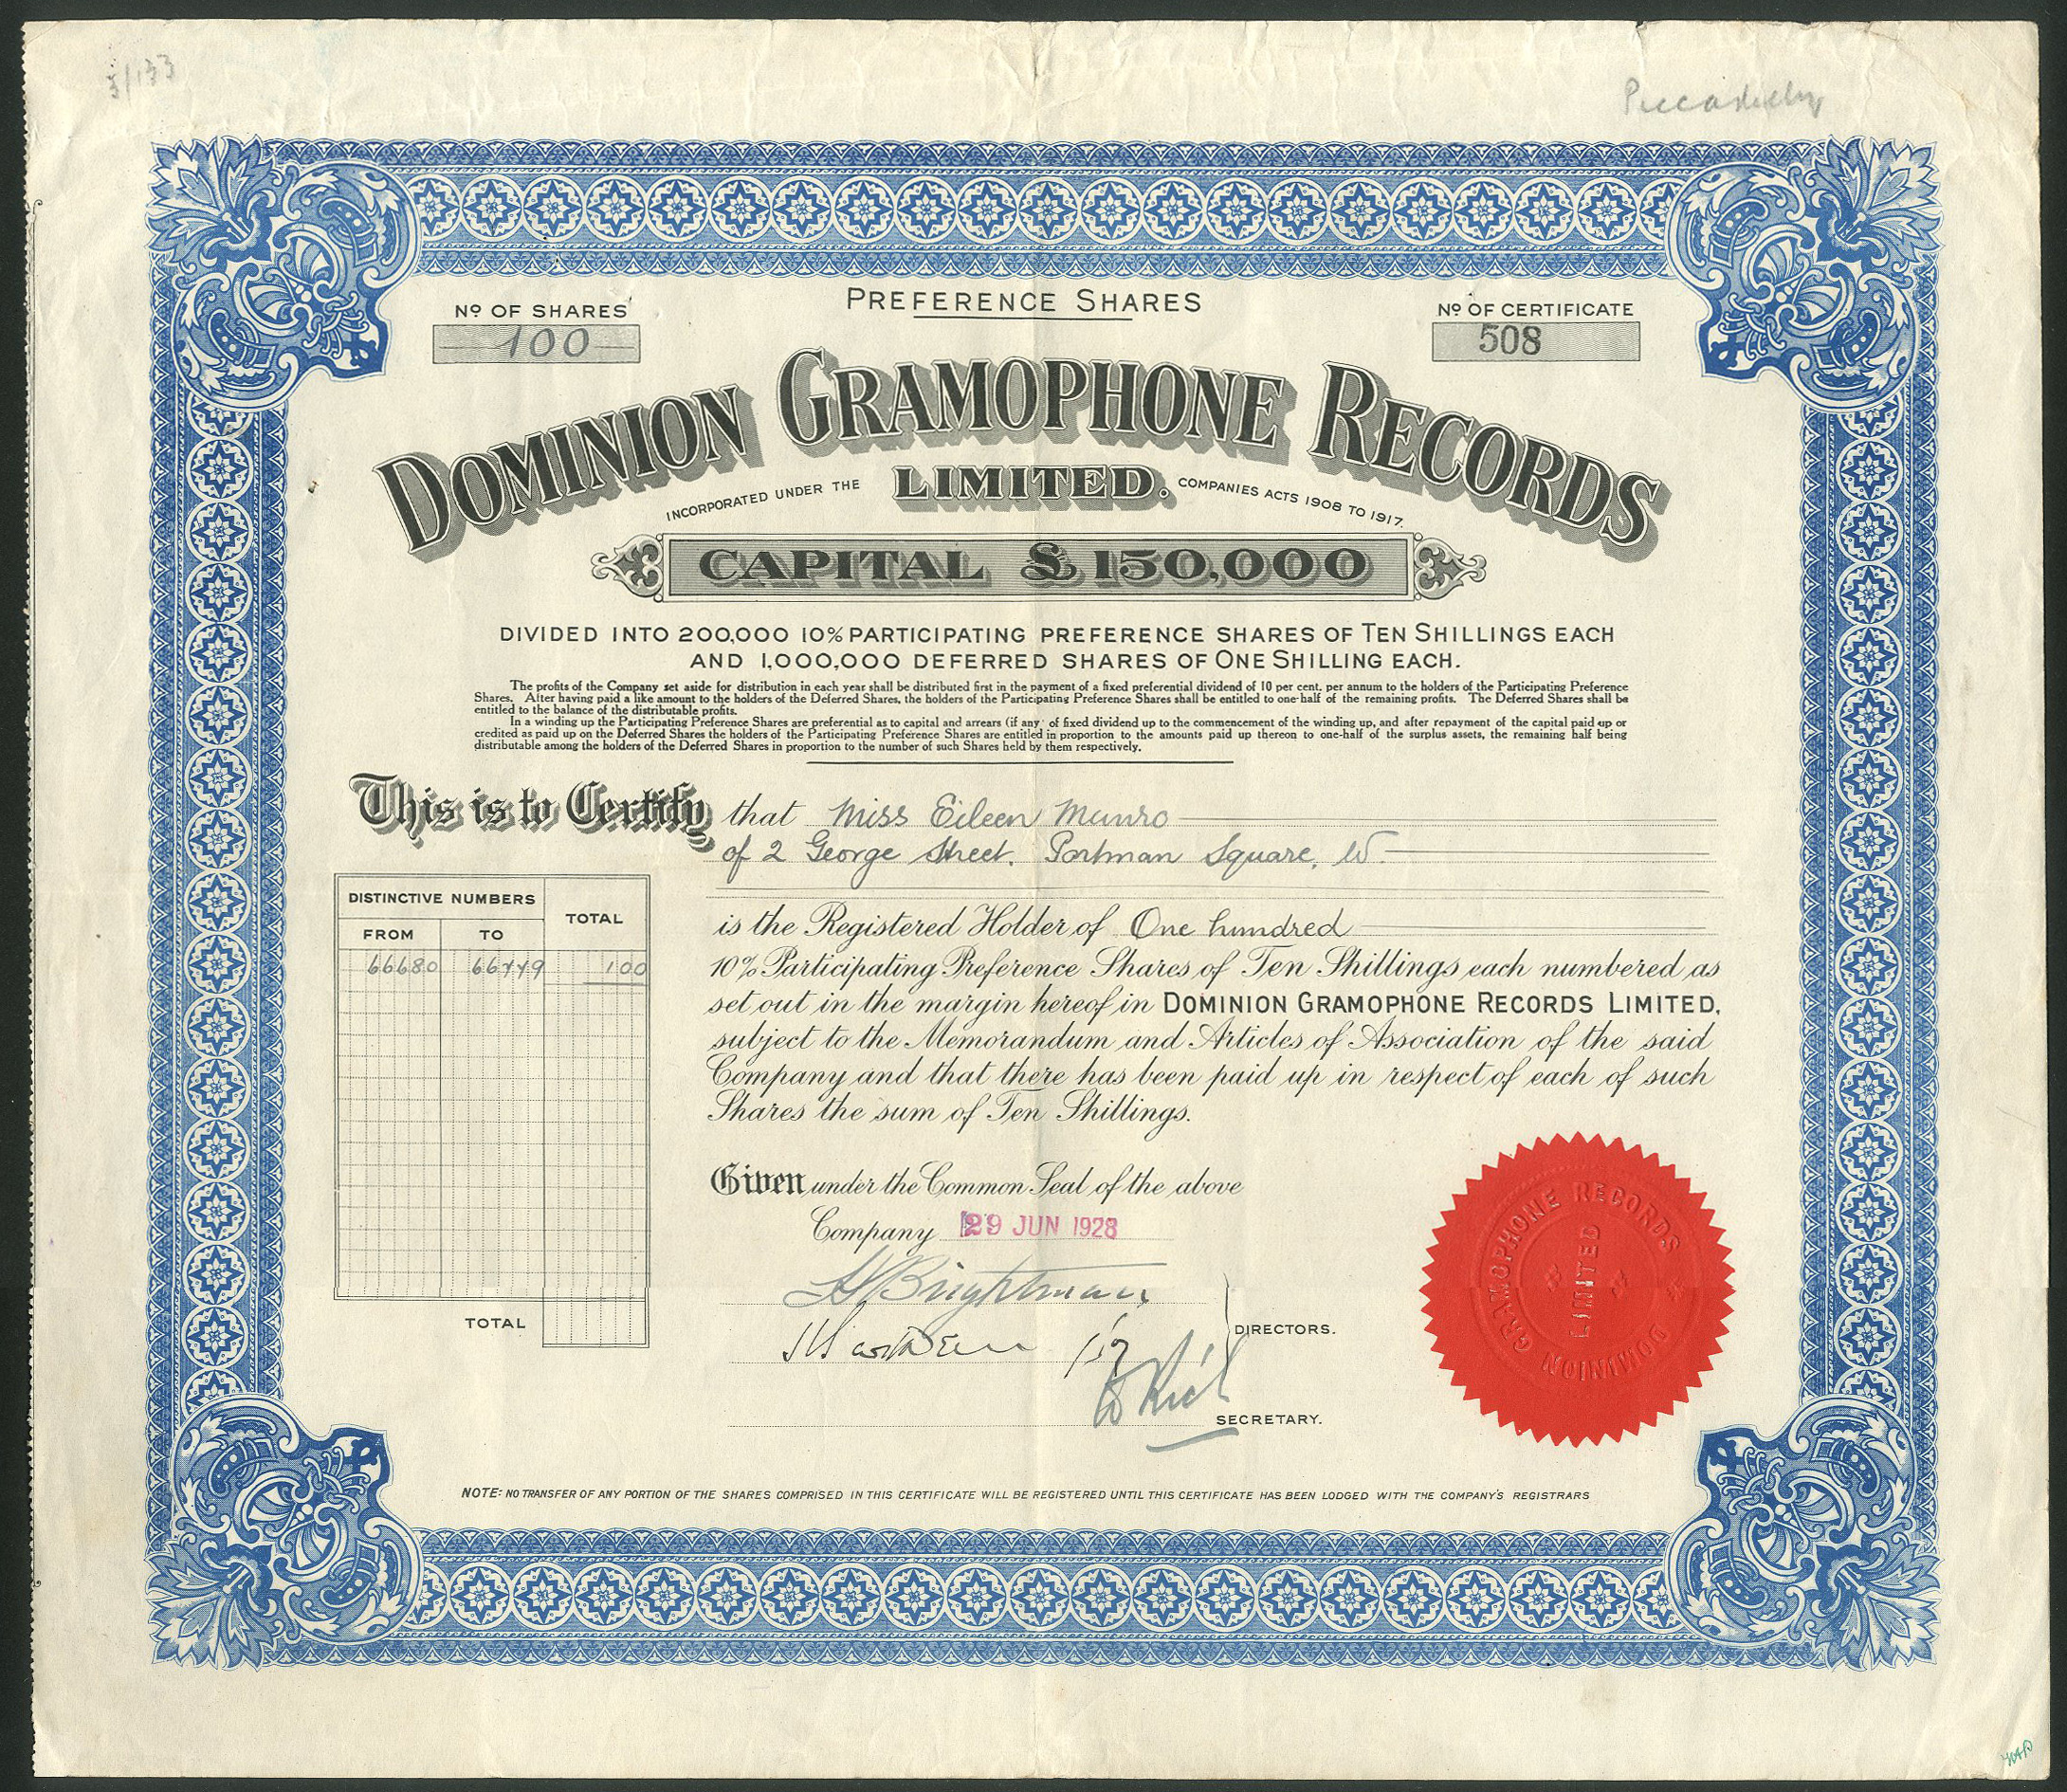 3/133
Piccadilly
Nº OF SHARES
100
PREFERENCE SHARES
Nº OF CERTIFICATE
508
DOMINION GRAMOPHONE RECORDS
INCORPORATED UNDER THE LIMITED. COMPANIES ACTS 1908 TO 1917.
CAPITAL £150,000
DIVIDED INTO 200,000 10% PARTICIPATING PREFERENCE SHARES OF TEN SHILLINGS EACH
AND 1,000,000 DEFERRED SHARES OF ONE SHILLING EACH.
The profits of the Company set aside for distribution in each year shall be distributed first in the payment of a fixed preferential dividend of 10 per cent. per annum to the holders of the Participating Preference
Shares. After having paid a like amount to the holders of the Deferred Shares, the holders of the Participating Preference Shares shall be entitled to one-half of the remaining profits. The Deferred Shares shall be
entitled to the balance of the distributable profits.
In a winding up the Participating Preference Shares are preferential as to capital and arrears (if any) of fixed dividend up to the commencement of the winding up, and after repayment of the capital paid up or
credited as paid up on the Deferred Shares the holders of the Participating Preference Shares are entitled in proportion to the amounts paid up thereon to one-half of the surplus assets, the remaining half being
distributable among the holders of the Deferred Shares in proportion to the number of such Shares held by them respectively.
This is to Certify that Miss Eileen Munro
of 2 George Street. Portman Square, W.
DISTINCTIVE NUMBERS
TOTAL
FROM TO
66680 66779 100
TOTAL
is the Registered Holder of One hundred
10% Participating Preference Shares of Ten Shillings each numbered as
set out in the margin hereof in DOMINION GRAMOPHONE RECORDS LIMITED,
subject to the Memorandum and Articles of Association of the said
Company and that there has been paid up in respect of each of such
Shares the sum of Ten Shillings.
Given under the Common Seal of the above
Company 29 JUN 1928
Brightman
DIRECTORS.
SECRETARY.
DOMINION GRAMOPHONE RECORDS
LIMITED
NOTE: NO TRANSFER OF ANY PORTION OF THE SHARES COMPRISED IN THIS CERTIFICATE WILL BE REGISTERED UNTIL THIS CERTIFICATE HAS BEEN LODGED WITH THE COMPANY'S REGISTRARS